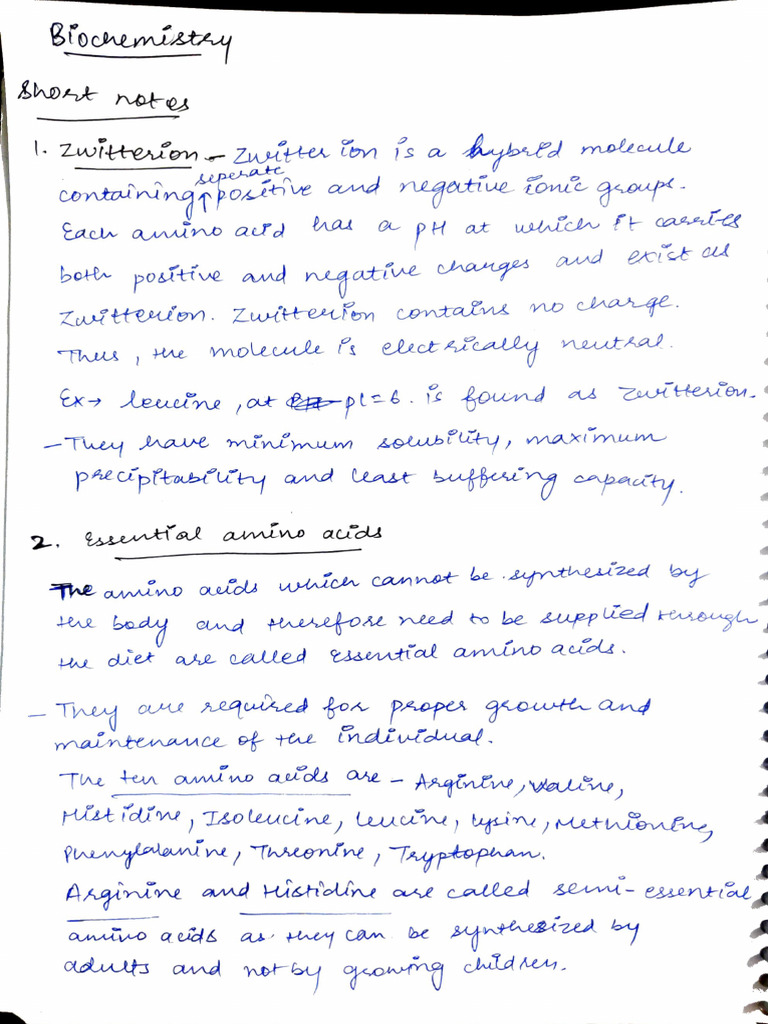 Biochemistry
Short notes
1. Zwitterion - Zwitter ion is a hybrid molecule
seperate
containing ↑ positive and negative ionic groups.
Each amino acid has a pH at which it carries
both positive and negative charges and exist as
Zwitterion. Zwitterion contains no charge.
Thus, the molecule is electrically neutral.
Ex → leucine, at pI=6. is found as zwitterion.
- They have minimum solubility, maximum
precipitability and least buffering capacity.
2. Essential amino acids
The amino acids which cannot be synthesized by
the body and therefore need to be supplied through
the diet are called essential amino acids.
- They are required for proper growth and
maintenance of the individual.
The ten amino acids are - Arginine, Valine,
Histidine, Isoleucine, Leucine, Lysine, Methionine,
Phenylalanine, Threonine, Tryptophan.
Arginine and Histidine are called semi-essential
amino acids as they can be synthesized by
adults and not by growing children.